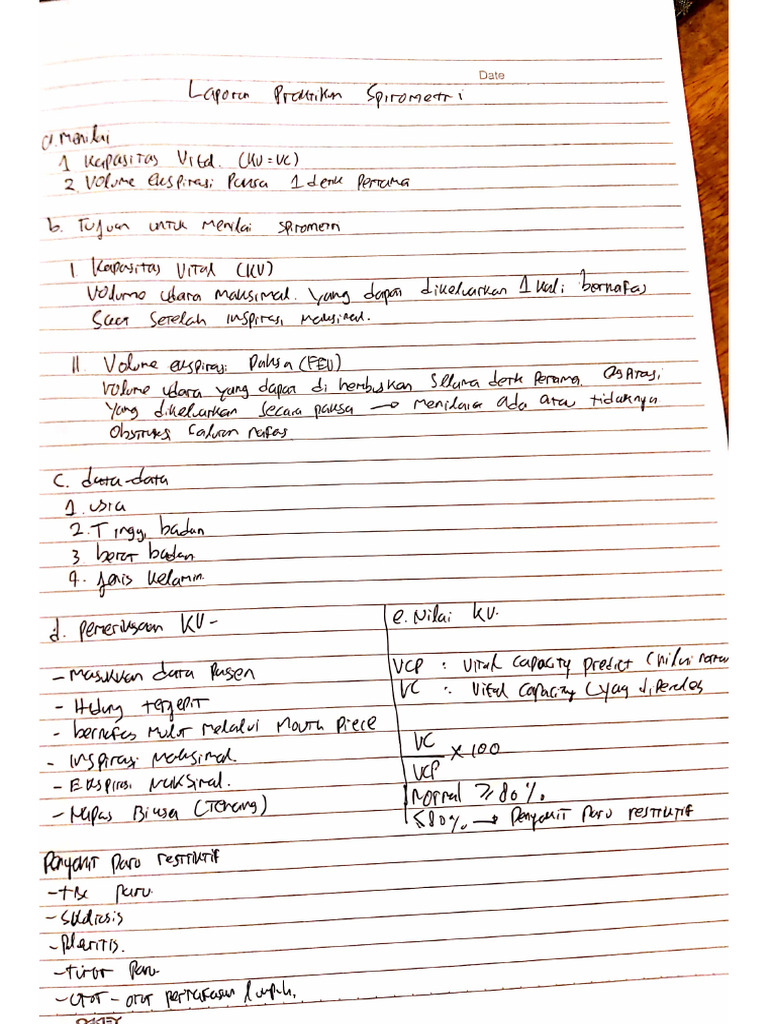 Date
Laporan Praktikum Spirometri
a. Menilai
1 Kapasitas Vital. (KV = VC)
2. Volume ekspirasi Paksa 1 detik Pertama
b. Tujuan untuk menilai spirometri
I. Kapasitas Vital (KV)
Volume udara maksimal. yang dapat dikeluarkan 1 kali bernafas
Saat setelah inspirasi maksimal.
II. Volume ekspirasi Paksa (FEV)
Volume udara yang dapat di hembuskan selama detik Pertama.
yang dikeluarkan secara paksa → menilai ada atau tidaknya
Obstruksi saluran nafas
C. data-data
1. usia
2. Tinggi badan
3 berat badan
4. Jenis kelamin.
d. Pemeriksaan KV -
- Masukkan data Pasien
- Hidung terjepit
- bernafas mulut melalui Mouth Piece
- Inspirasi Maksimal.
- Ekspirasi Maksimal.
- Napas Biasa (Tenang)
e. Nilai KV.
VCP : Vital Capacity Predict (nilai normal
VC : Vital Capacity (yang diperoleh
VC
VCP
x 100
Normal ≥ 80%.
≤ 80%. → Penyakit Paru restriktif
Penyakit Paru restriktif
- TBC Paru.
-
- Pleuritis.
- tumor Paru
- Otot - otot pernafasan lumpuh.
OKEY